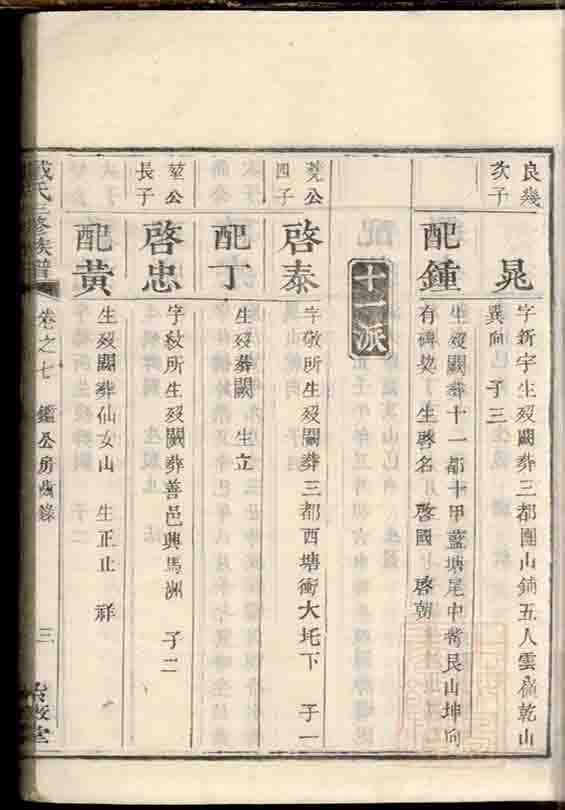 良幾
次子
晃
字新宇生歿闕葬三都團山鋪五人雲嶺乾山
巽向 子三
配鍾
生歿闕葬十一都十甲藍塘尾中嘴艮山坤向
有碑契 生啓名 啓國 啓朝
十一派
公
四子
啓泰
字敬所生歿闕葬三都西塘衝大圫下 子一
配丁
生歿葬闕 生立
堃公
長子
啓忠
字紋所生歿闕葬善邑興馬洲 子二
配黃
生歿闕葬仙女山 生正止 祥
戴氏修族譜
卷之七 鑑公房齒錄
三
堂